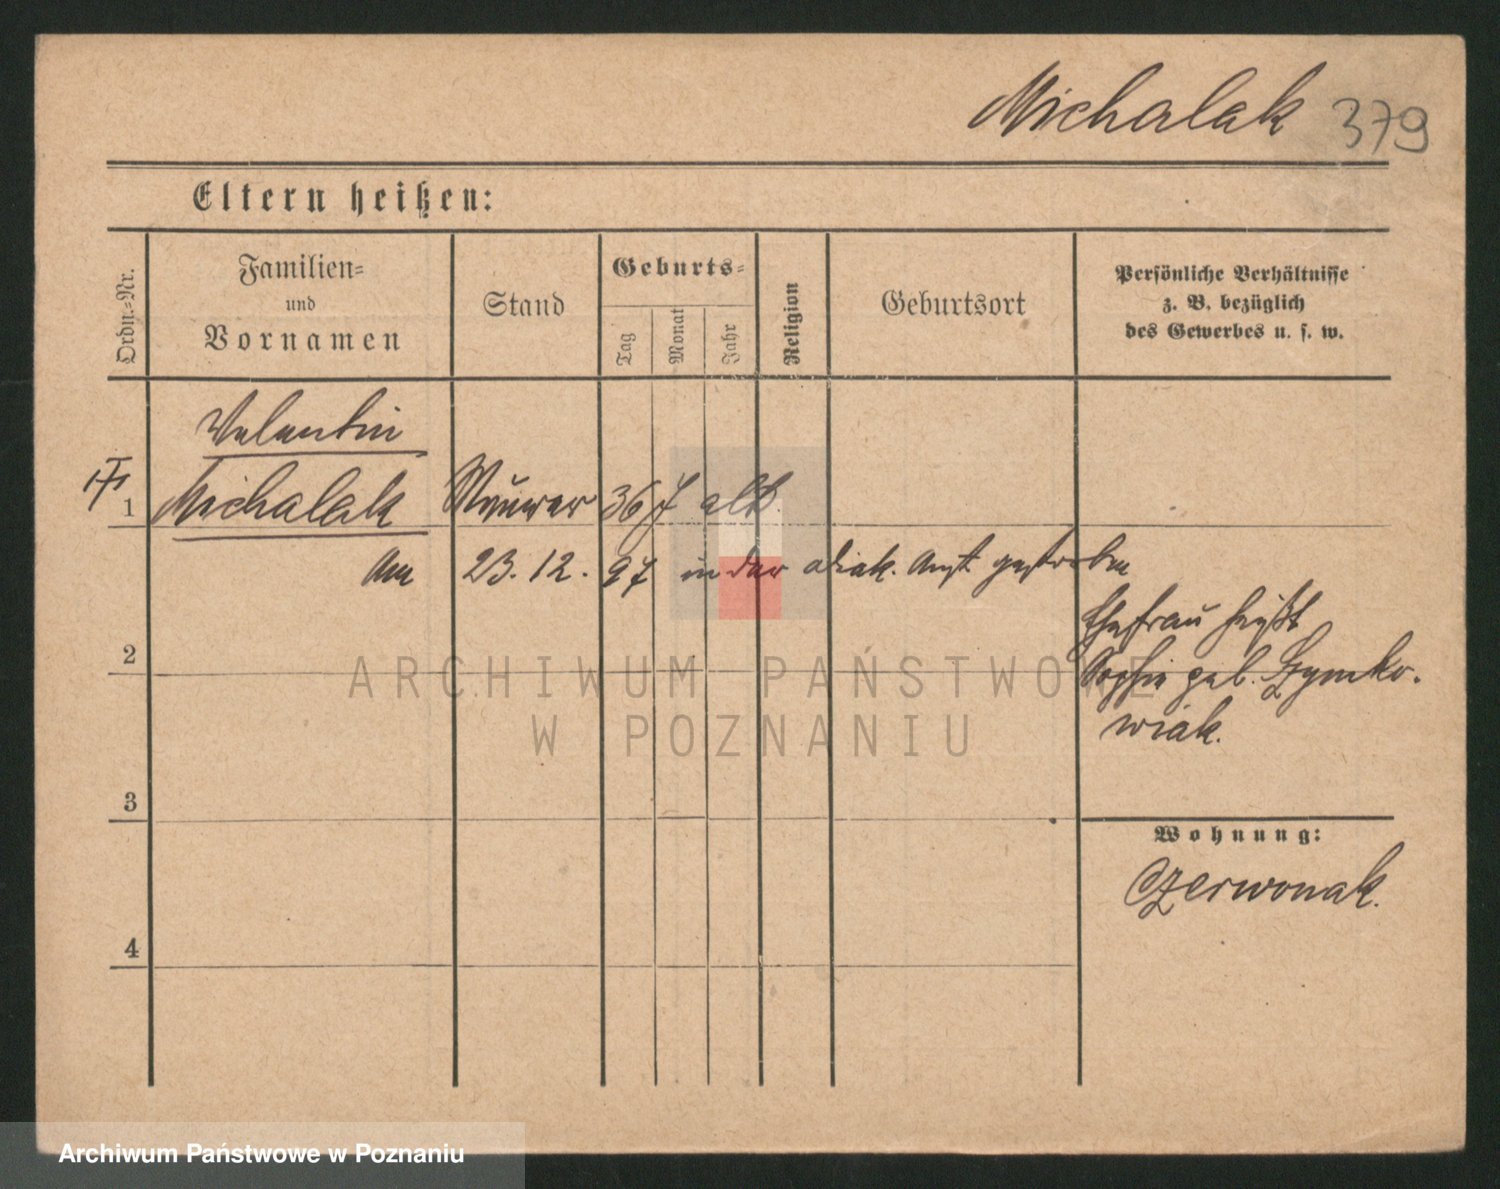 Michalak 379
Eltern heißen:
Ordn.-Nr.
Familien-
und
Vornamen
Stand
Geburts-
Tag
Monat
Jahr
Religion
Geburtsort
Persönliche Verhältnisse
z. B. bezüglich
des Gewerbes u. s. w.
Valentin
1 Michalak Maurer 36 J alt
am 23. 12. 97 in der Diak. Anst. gestorben
Ehefrau heißt
2 Sophie geb. Szymko-
wiak.
3
Wohnung:
Czerwonak.
4
ARCHIWUM PAŃSTWOWE
W POZNANIU
Archiwum Państwowe w Poznaniu